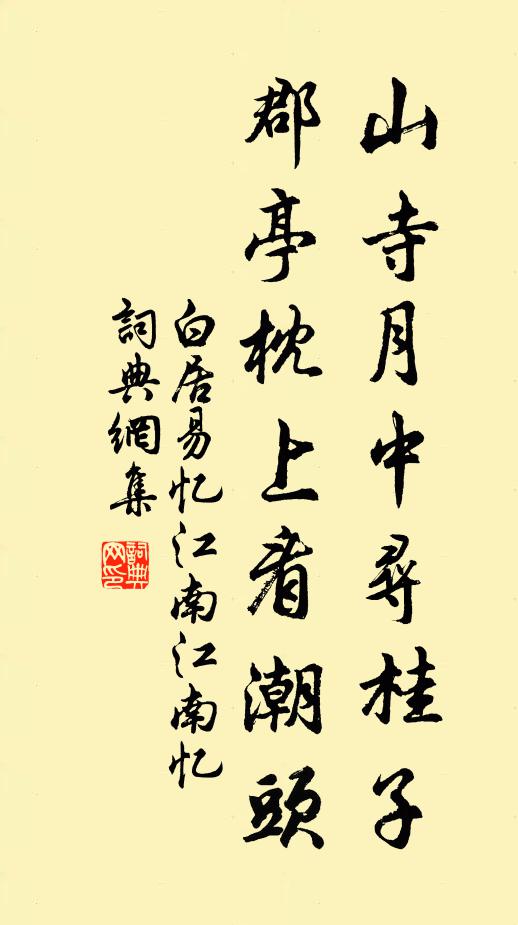 山寺月中尋桂子
郡亭枕上看潮頭
白居易忆江南江南忆
詞典網集
詞典网印